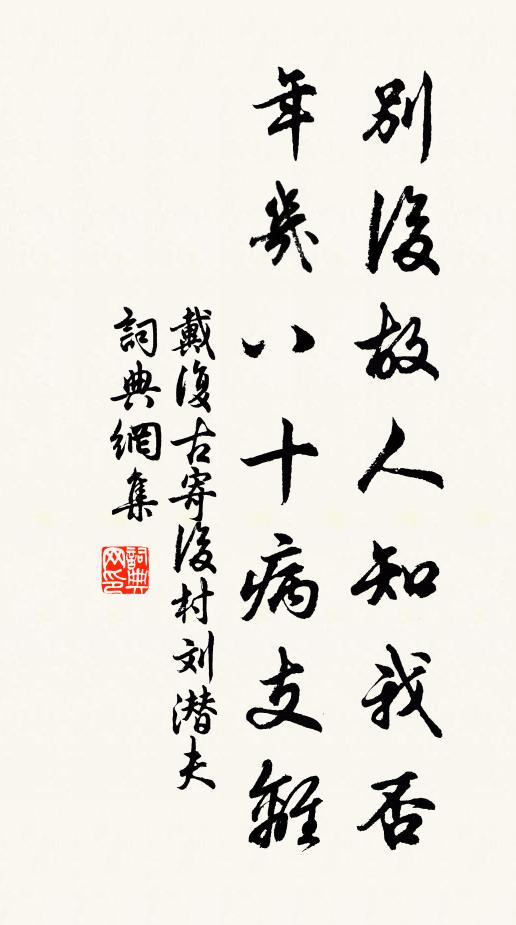 別後故人知我否
年幾八十病支離
戴復古寄後村刘潜夫
詞典網集
詞典網印